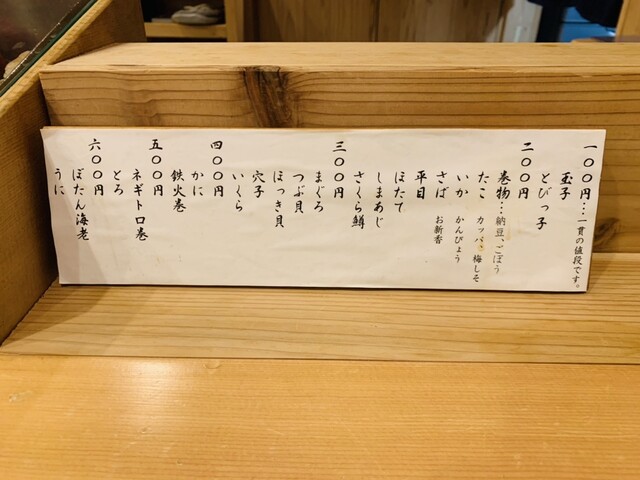 一〇〇円…一貫の値段です。
玉子
とびっ子
二〇〇円
巻物…納豆、ごぼう
カッパ、梅しそ
かんぴょう
お新香
たこ
いか
さば
平目
ほたて
しまあじ
さくら鱒
三〇〇円
まぐろ
つぶ貝
ほっき貝
穴子
いくら
四〇〇円
かに
鉄火巻
五〇〇円
ネギトロ巻
とろ
六〇〇円
ぼたん海老
うに